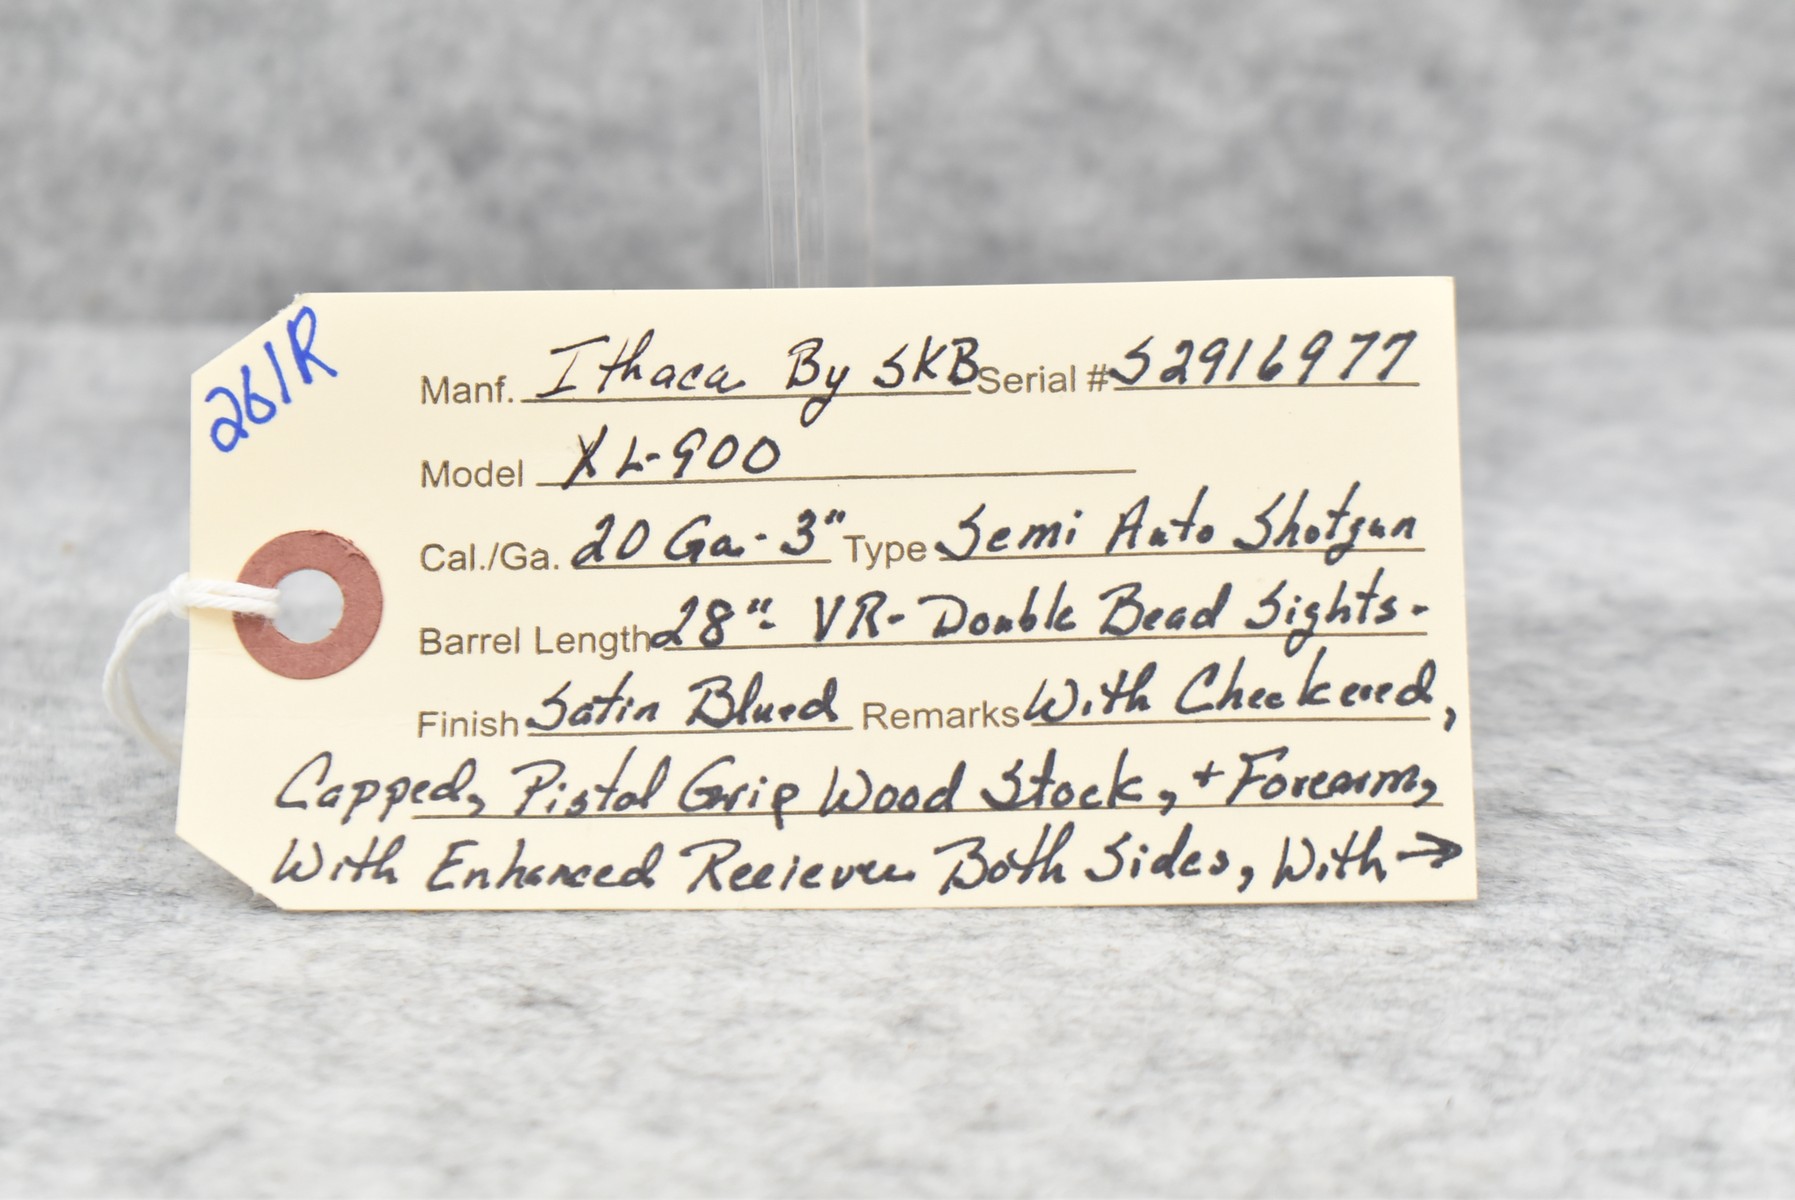 261R
Manf. Ithaca By SKB Serial # S2916977
Model XL-900
Cal./Ga. 20 Ga.-3" Type Semi Auto Shotgun
Barrel Length 28"- VR-Double Bead Sights-
Finish Satin Blued Remarks With Checkered,
Capped, Pistol Grip Wood Stock, + Forearm,
With Enhanced Reciever Both Sides, With →